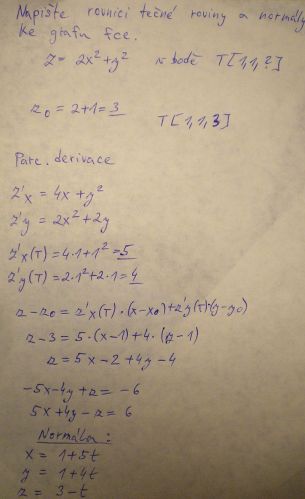 Napište rovnici tečné roviny a normály
ke grafu fce.
z = 2x² + y² v bodě T[1,1,?]
z₀ = 2+1 = 3
T[1,1,3]
Parc. derivace
z'x = 4x + y²
z'y = 2x² + 2y
z'x(T) = 4·1 + 1² = 5
z'y(T) = 2·1² + 2·1 = 4
z-z₀ = z'x(T)·(x-x₀)+z'y(T)·(y-y₀)
z-3 = 5·(x-1)+4·(y-1)
z = 5x-2+4y-4
-5x-4y+z = -6
5x+4y-z = 6
Normála:
x = 1+5t
y = 1+4t
z = 3-t